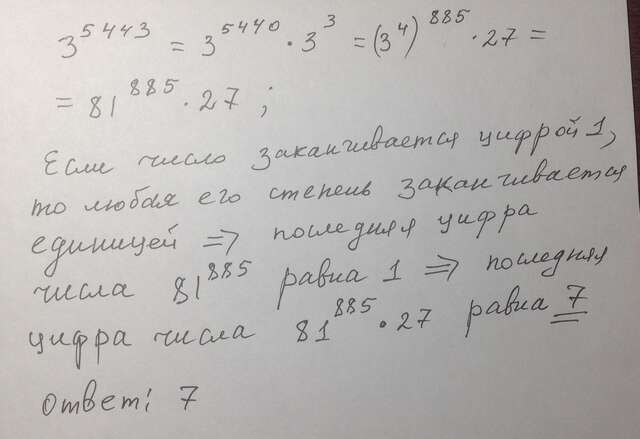 3^5443 = 3^5440 · 3^3 = (3^4)^885 · 27 =
= 81^885 · 27 ;
Если число заканчивается цифрой 1,
то любая его степень заканчивается
единицей => последняя цифра
числа 81^885 равна 1 => последняя
цифра числа 81^885 · 27 равна 7
ответ: 7